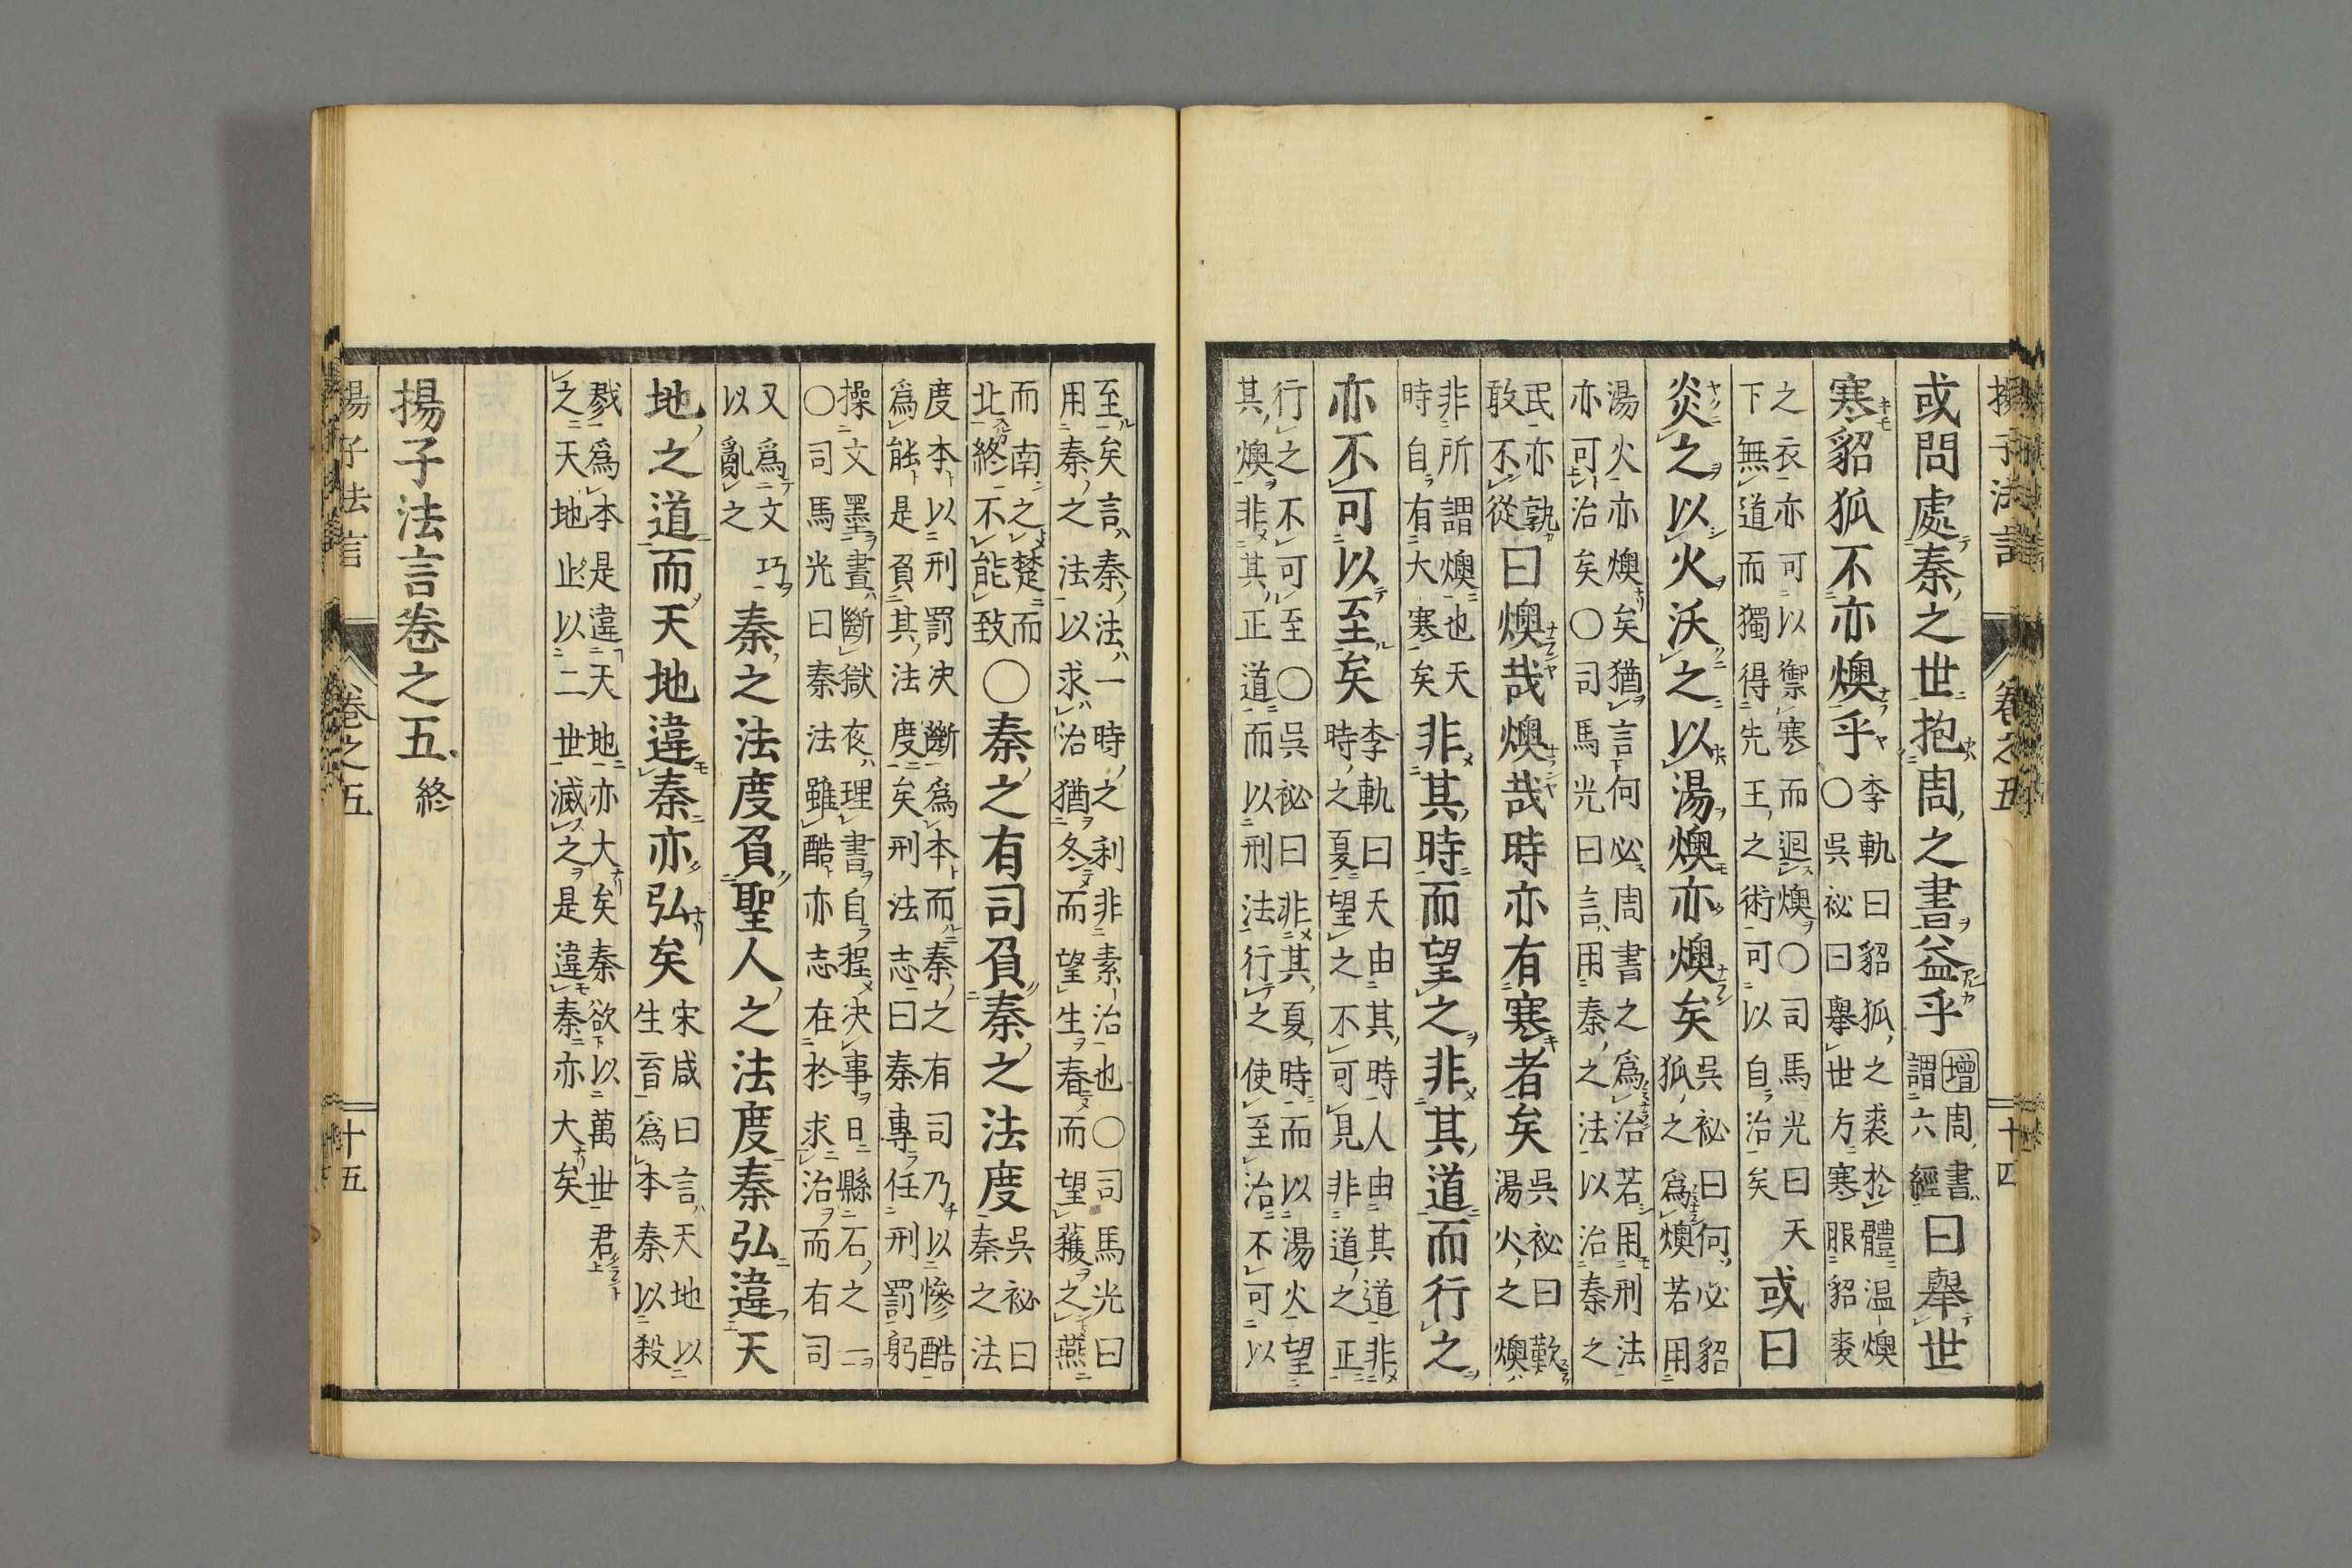 揚子法言 卷之五 十四
或問處秦之世抱周之書益乎
增周書
謂六經
曰舉世
寒貂狐不亦燠乎
李軌曰貂狐之裘於體温燠
○吳祕曰舉世方寒服貂裘
之衣亦可以禦寒而迴燠○司馬光曰天
下無道而獨得先王之術可以自治矣
或曰
炎之以火沃之以湯燠亦燠矣
吳祕曰何必貂
狐之爲燠若用
湯火亦燠矣猶言何必周書之爲治若用刑法
亦可治矣○司馬光曰言用秦之法以治秦之
民亦孰
敢不從
曰燠哉燠哉時亦有寒者矣
吳祕曰歎
湯火之燠
非所謂燠也天
時自有大寒矣
非其時而望之非其道而行之
亦不可以至矣
李軌曰天由其時人由其道非
時之夏望之不可見非道之正
行之不可至○吳祕曰非其夏時而以湯火望
其燠非其正道而以刑法行之使至治不可以
至矣言秦法一時之利非素治也○司馬光曰
用秦之法以求治猶冬而望生春而望穫之燕
而南之楚而
北終不能致
○秦之有司負秦之法度
吳祕曰
秦之法
度本以刑罰決斷爲本而秦之有司乃以慘酷
爲能是負其法度矣刑法志曰秦專任刑罰躬
操文墨晝斷獄夜理書自程決事日縣石之一
○司馬光曰秦法雖酷亦志在於求治而有司
又爲文巧
以亂之
秦之法度負聖人之法度秦弘違天
地之道而天地違秦亦弘矣
宋咸曰言天地以
生育爲本秦以殺
戮爲本是違天地亦大矣秦欲以萬世君
之天地止以二世滅之是違秦亦大矣
揚子法言卷之五終
揚子法言 卷之五 十五